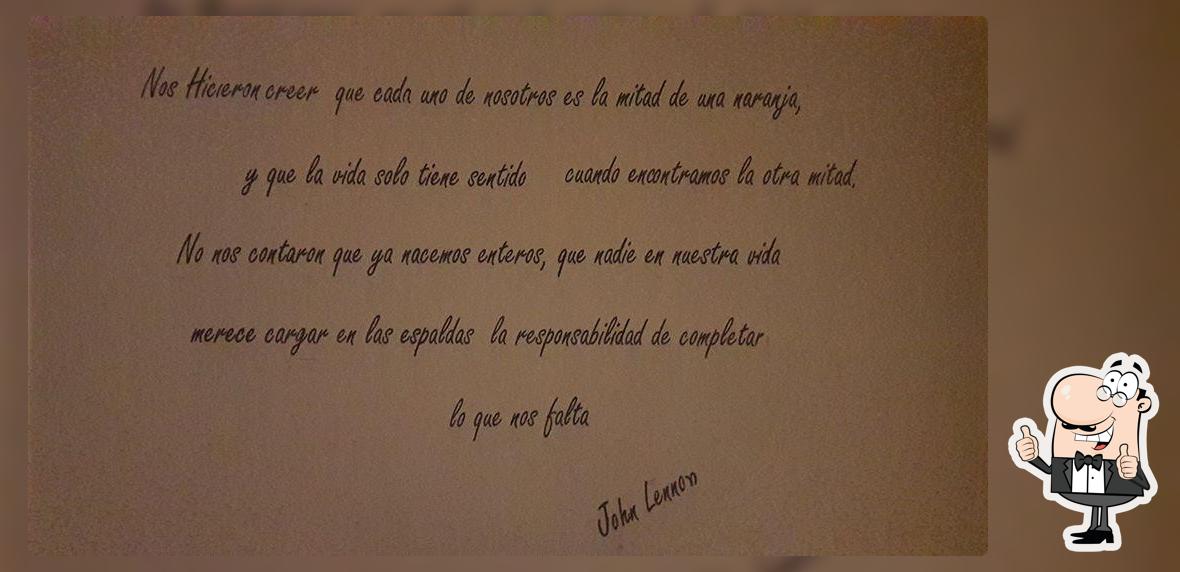 Nos Hicieron creer que cada uno de nosotros es la mitad de una naranja,
y que la vida solo tiene sentido cuando encontramos la otra mitad.
No nos contaron que ya nacemos enteros, que nadie en nuestra vida
merece cargar en las espaldas la responsabilidad de completar
lo que nos falta
John Lennon